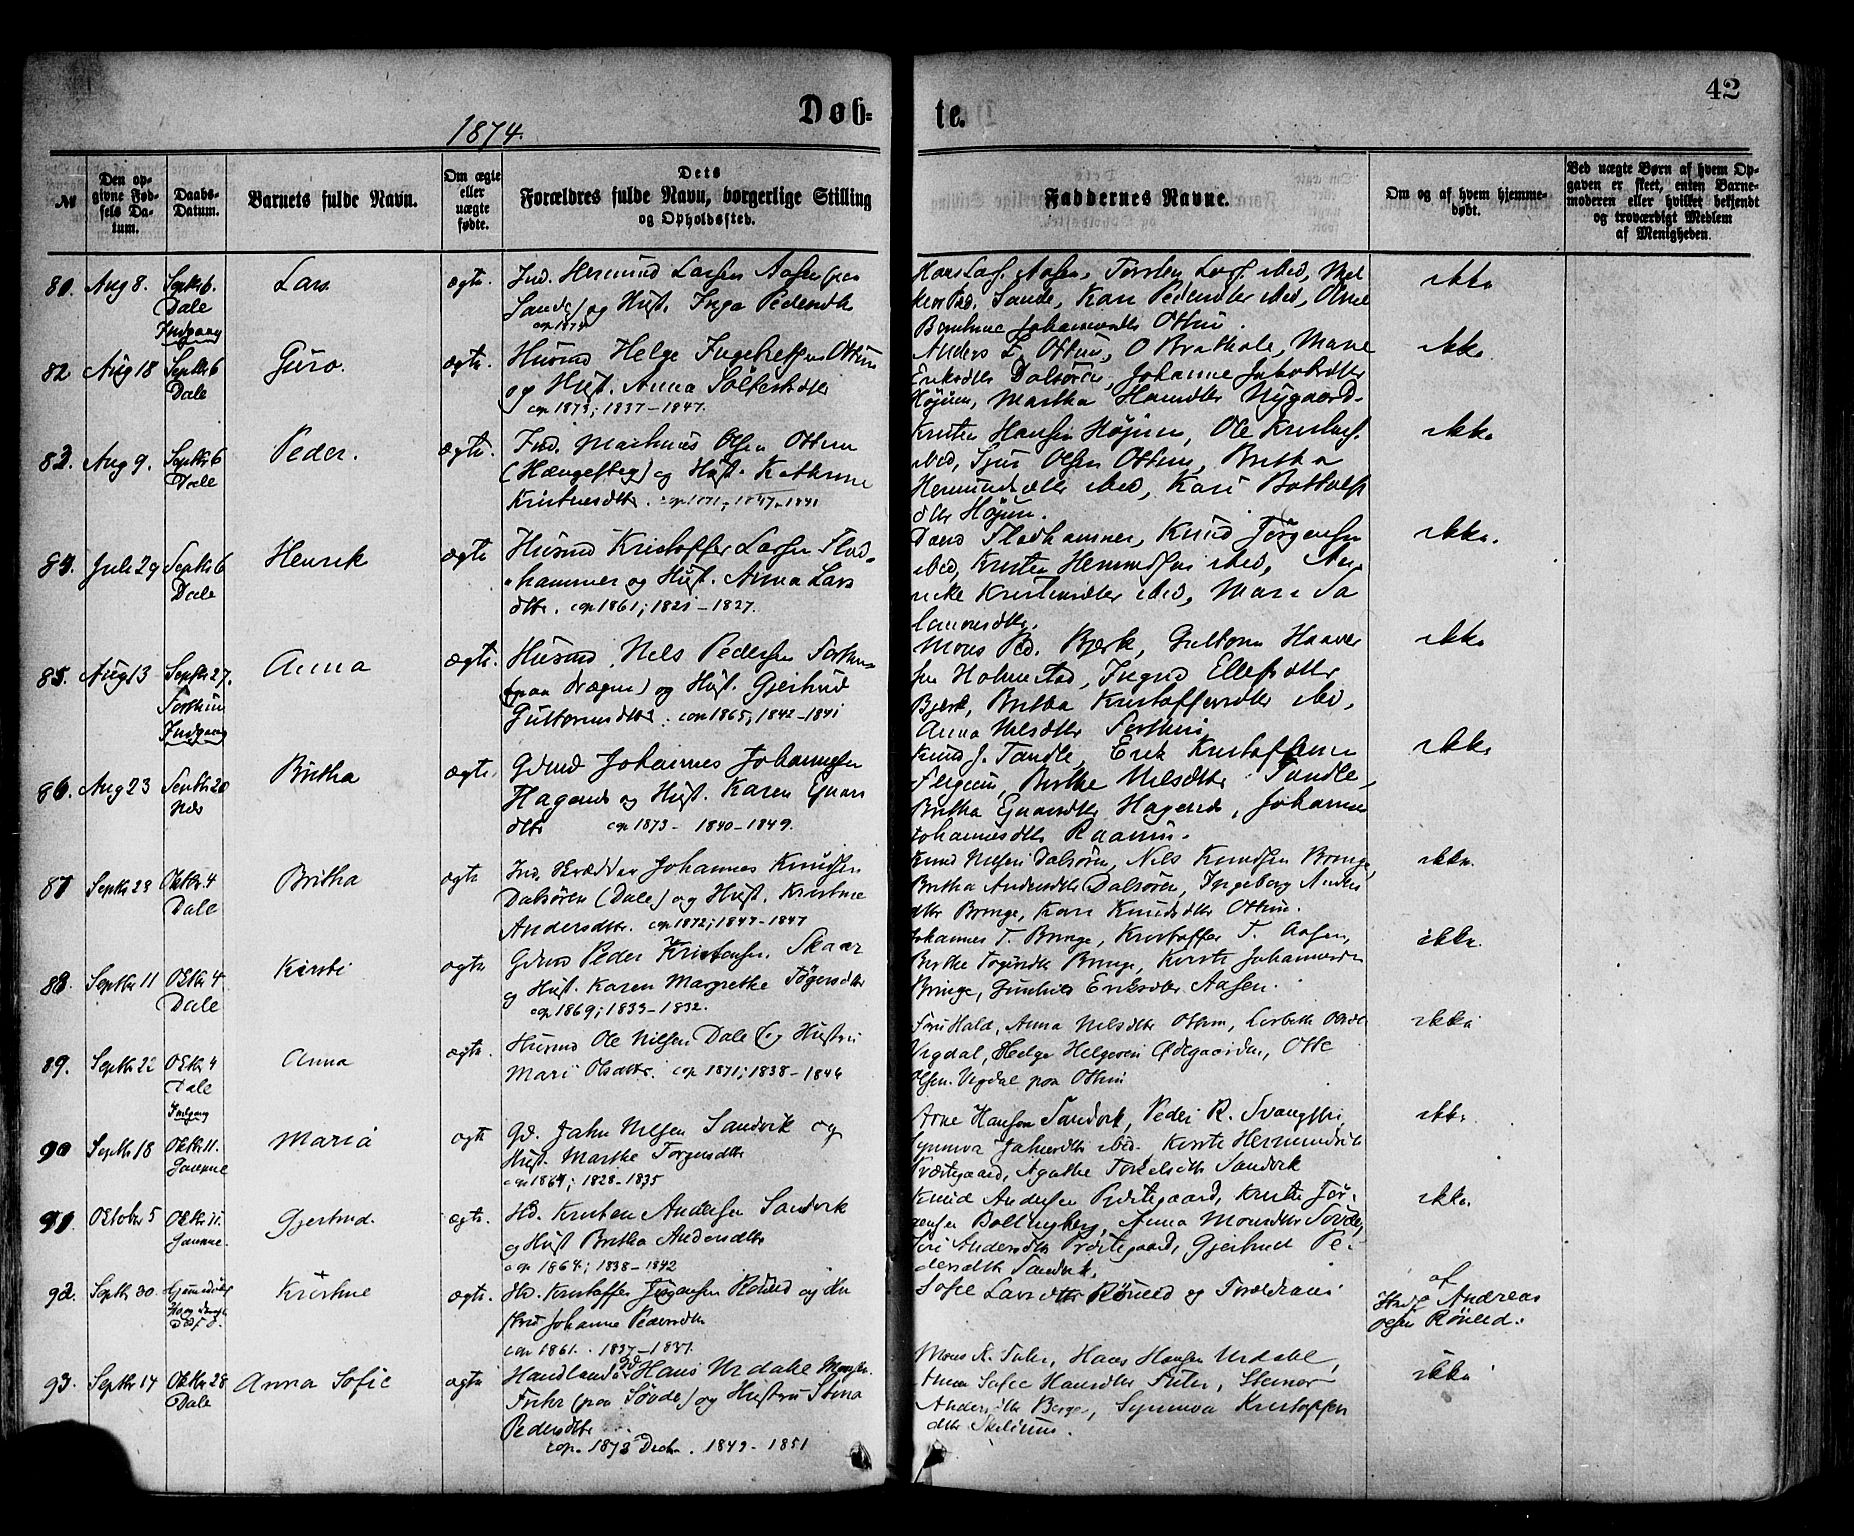 42
Døb-
te.
1874.
№
Den op-
givne Fød-
sels Da-
tum.
Daabs-
Datum.
Barnets fulde Navn.
Om ægte
eller
uægte
fødte.
Dets
Forældres fulde Navn, borgerlige Stilling
og Opholdssted.
Faddernes Navne.
Om og af hvem hjemme-
døbt.
Ved uægte Børn af hvem Op-
gaven er skeet, enten Barne-
moderen eller hvilket bekjendt
og troværdigt Medlem
af Menigheden.
81. Aug 8. Septbr 6. Dale Indgang
Lars
ægte.
Ind. Hermund Larsen Aasen (paa
Sande) og Hust. Inga Pedersdtr
cop 1874
Hans Lass. Aasen, Torsten Lass. ibid, Mel-
Ped. Sande, Kari Pedersdtr ibid, Oline
Johannesdtr Ottum.
ikke
82. Aug 18 Septbr 6 Dale
Guro.
ægte.
Husmd Helge Ingebretsen Ottum
og Hust. Anna Sølfestsdtr
cop 1873; 1837-1847.
Anders L. Ottum, O Brathole, Marie
Eriksdtr Dalsøren, Johanne Jakobsdtr
Højum, Martha Hansdtr Nygaard.
ikke.
83. Aug 9. Septbr 6 Dale
Peder.
ægte.
Ind. Mathias Olsen Ottum
(Hængesteg) og Hust. Kathrine
Kristensdtr. cop 1871; 1847-1841
Kristen Hansen Højum, Ole Kristens.
ibid, Sjur Olsen Ottum, Britha
Hermundsdtr ibid, Kari Bottolfs
dtr Højum.
ikke
84. Juli 29 Septbr 6 Dale
Henrik
ægte
Husmd Kristoffer Larsen Flad-
hammer og Hust. Anna Lars
dtr. cop 1861; 1821-1827.
David Fladhammer, Knud Jørgensen
ibid, Kristen Hermundsen ibid, An-
nike Kristensdtr ibid, Mari Sa
lamonsdtr.
ikke.
85. Aug 13 Septbr 27. Fortun Indgang
Anna
ægte.
Husmd Nils Pedersen Fortun
(paa Drægni) og Hust. Gjertrud
Guttormsdtr. cop 1865; 1842-1841
Mons Ped. Bjørk, Guttorm Haaver
sen Holmstad, Ingrid Ellefsdtr
Bjørk, Britha Kristoffersdtr ibid,
Anna Nilsdtr Fortun.
ikke
86. Aug 23 Septbr 20 Næs
Britha
ægte.
Gdmd Johannes Johannesen
Hagen og Hust. Karen Ejnars
dtr cop 1873 - 1840-1849.
Knud J. Tandle, Erik Kristoffersen
Flugeim, Berthe Nilsdtr Tandle,
Britha Ejnarsdtr Hagen, Johanna
Johannesdtr Raaum.
ikke
87 Septbr 23 Oktbr. 4 Dale
Britha
ægte
Ind. Skrædder Johannes Knudsen
Dalsøren (Dale) og Hust. Kristine
Andersdtr. cop 1872; 1847-1847
Knud Nilsen Dalsøren, Nils Knudsen Bringe,
Britha Andersdtr Dalsøren, Ingeborg Anders
dtr Bringe, Kari Knudsdtr Ottum.
ikke.
88. Septbr 11 Oktbr 4 Dale
Kirsti
ægte
Gdmd Peder Kristensen Skaar
og Hust. Karen Margrethe Tøgersdtr
cop 1869; 1833-1832.
Johannes T. Bringe, Kristoffer T. Aasen,
Berthe Tøgersdtr Bringe, Kirsti Johannesdtr
Bringe, Gunhild Eriksdtr Aasen.
ikke.
89. Septbr 22 Oktbr 4 Dale Indgang
Anna
ægte.
Husmd Ole Nilsen Dale og Hustru
Mari Olsdtr. cop 1871; 1838-1846
Hald, Anna Nilsdtr Ottum, Lisbeth Olsdtr
Vigdal, Helge Helgesen Ødegaarden, Otte
Olsen Vigdal paa Ottum
ikke
90 Septbr 18 Oktbr 11. Gaupne
Maria
ægte
Gd. Jahn Nilsen Sandvik og
Hust. Marthe Torgersdtr
cop 1864; 1828-1835
Arne Hansen Sandvik, Peder R.
Synneva Jahnsdtr ibid. Kirsti Hermundsdtr
Prestegaard, Agathe Torkelsdtr Sandvik
ikke
91. Oktober 5 Oktbr. 11. Gaupne.
Gjertrud.
ægte.
Hd. Kristen Andersen Sandvik
og Hust Britha Andersdtr
cop 1864; 1838-1842
Knud Andersen Prestegaard, Kristen Jør-
gensen Bollingberg, Anna Monsdtr Søvde,
Siri Andersdtr Prestegaard, Gjertrud Pe-
dersdtr Sandvik.
ikke.
92. Septbr 30.
Kristine
ægte.
Hd. Kristoffer Jørgensen Røneid og Hu
stru Johanne Pedersdtr
cop 1861. 1837-1837.
Sofie Larsdtr Røneid og Forældrene
af
Andreas
Olsen Røneid.
93. Septbr 14 Oktbr 28 Dale
Anna Sofie
ægte
Handlende Gd Hans Urdahl Monsen
Fuhr (paa Søvde) og Hustru Stina
Pedersdtr
cop. 1873 Decbr. 1849-1851
Mons K. Fuhr, Hans Hansen Urdahl,
Anna Sofie Hansdtr Fuhr, Steinar
Andersdtr Berge, Synneva Kristoffers
dtr Skildum.
ikke